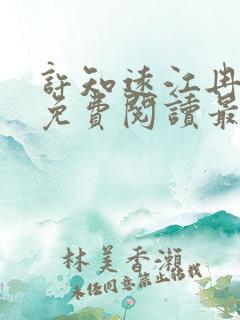 許知遠江冉
免費閱讀最
林美香瀨
未經同意禁止轉載